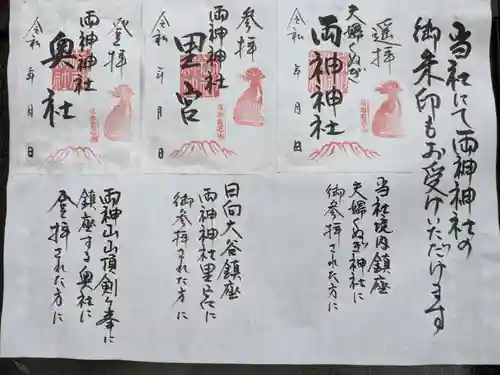 当社にて両神神社の
御朱印もお受けいただけます
遥拝
夫婦くぬぎ
両神神社
令和 年 月 日
参拝
両神神社
里宮
令和 年 月 日
登拝
両神神社
奥社
令和 年 月 日
当社境内鎮座
夫婦くぬぎ神社に
御参拝された方に
日向大谷鎮座
両神神社里宮に
御参拝された方に
両神山山頂剣ヶ峯に
鎮座する奥社に
登拝された方に